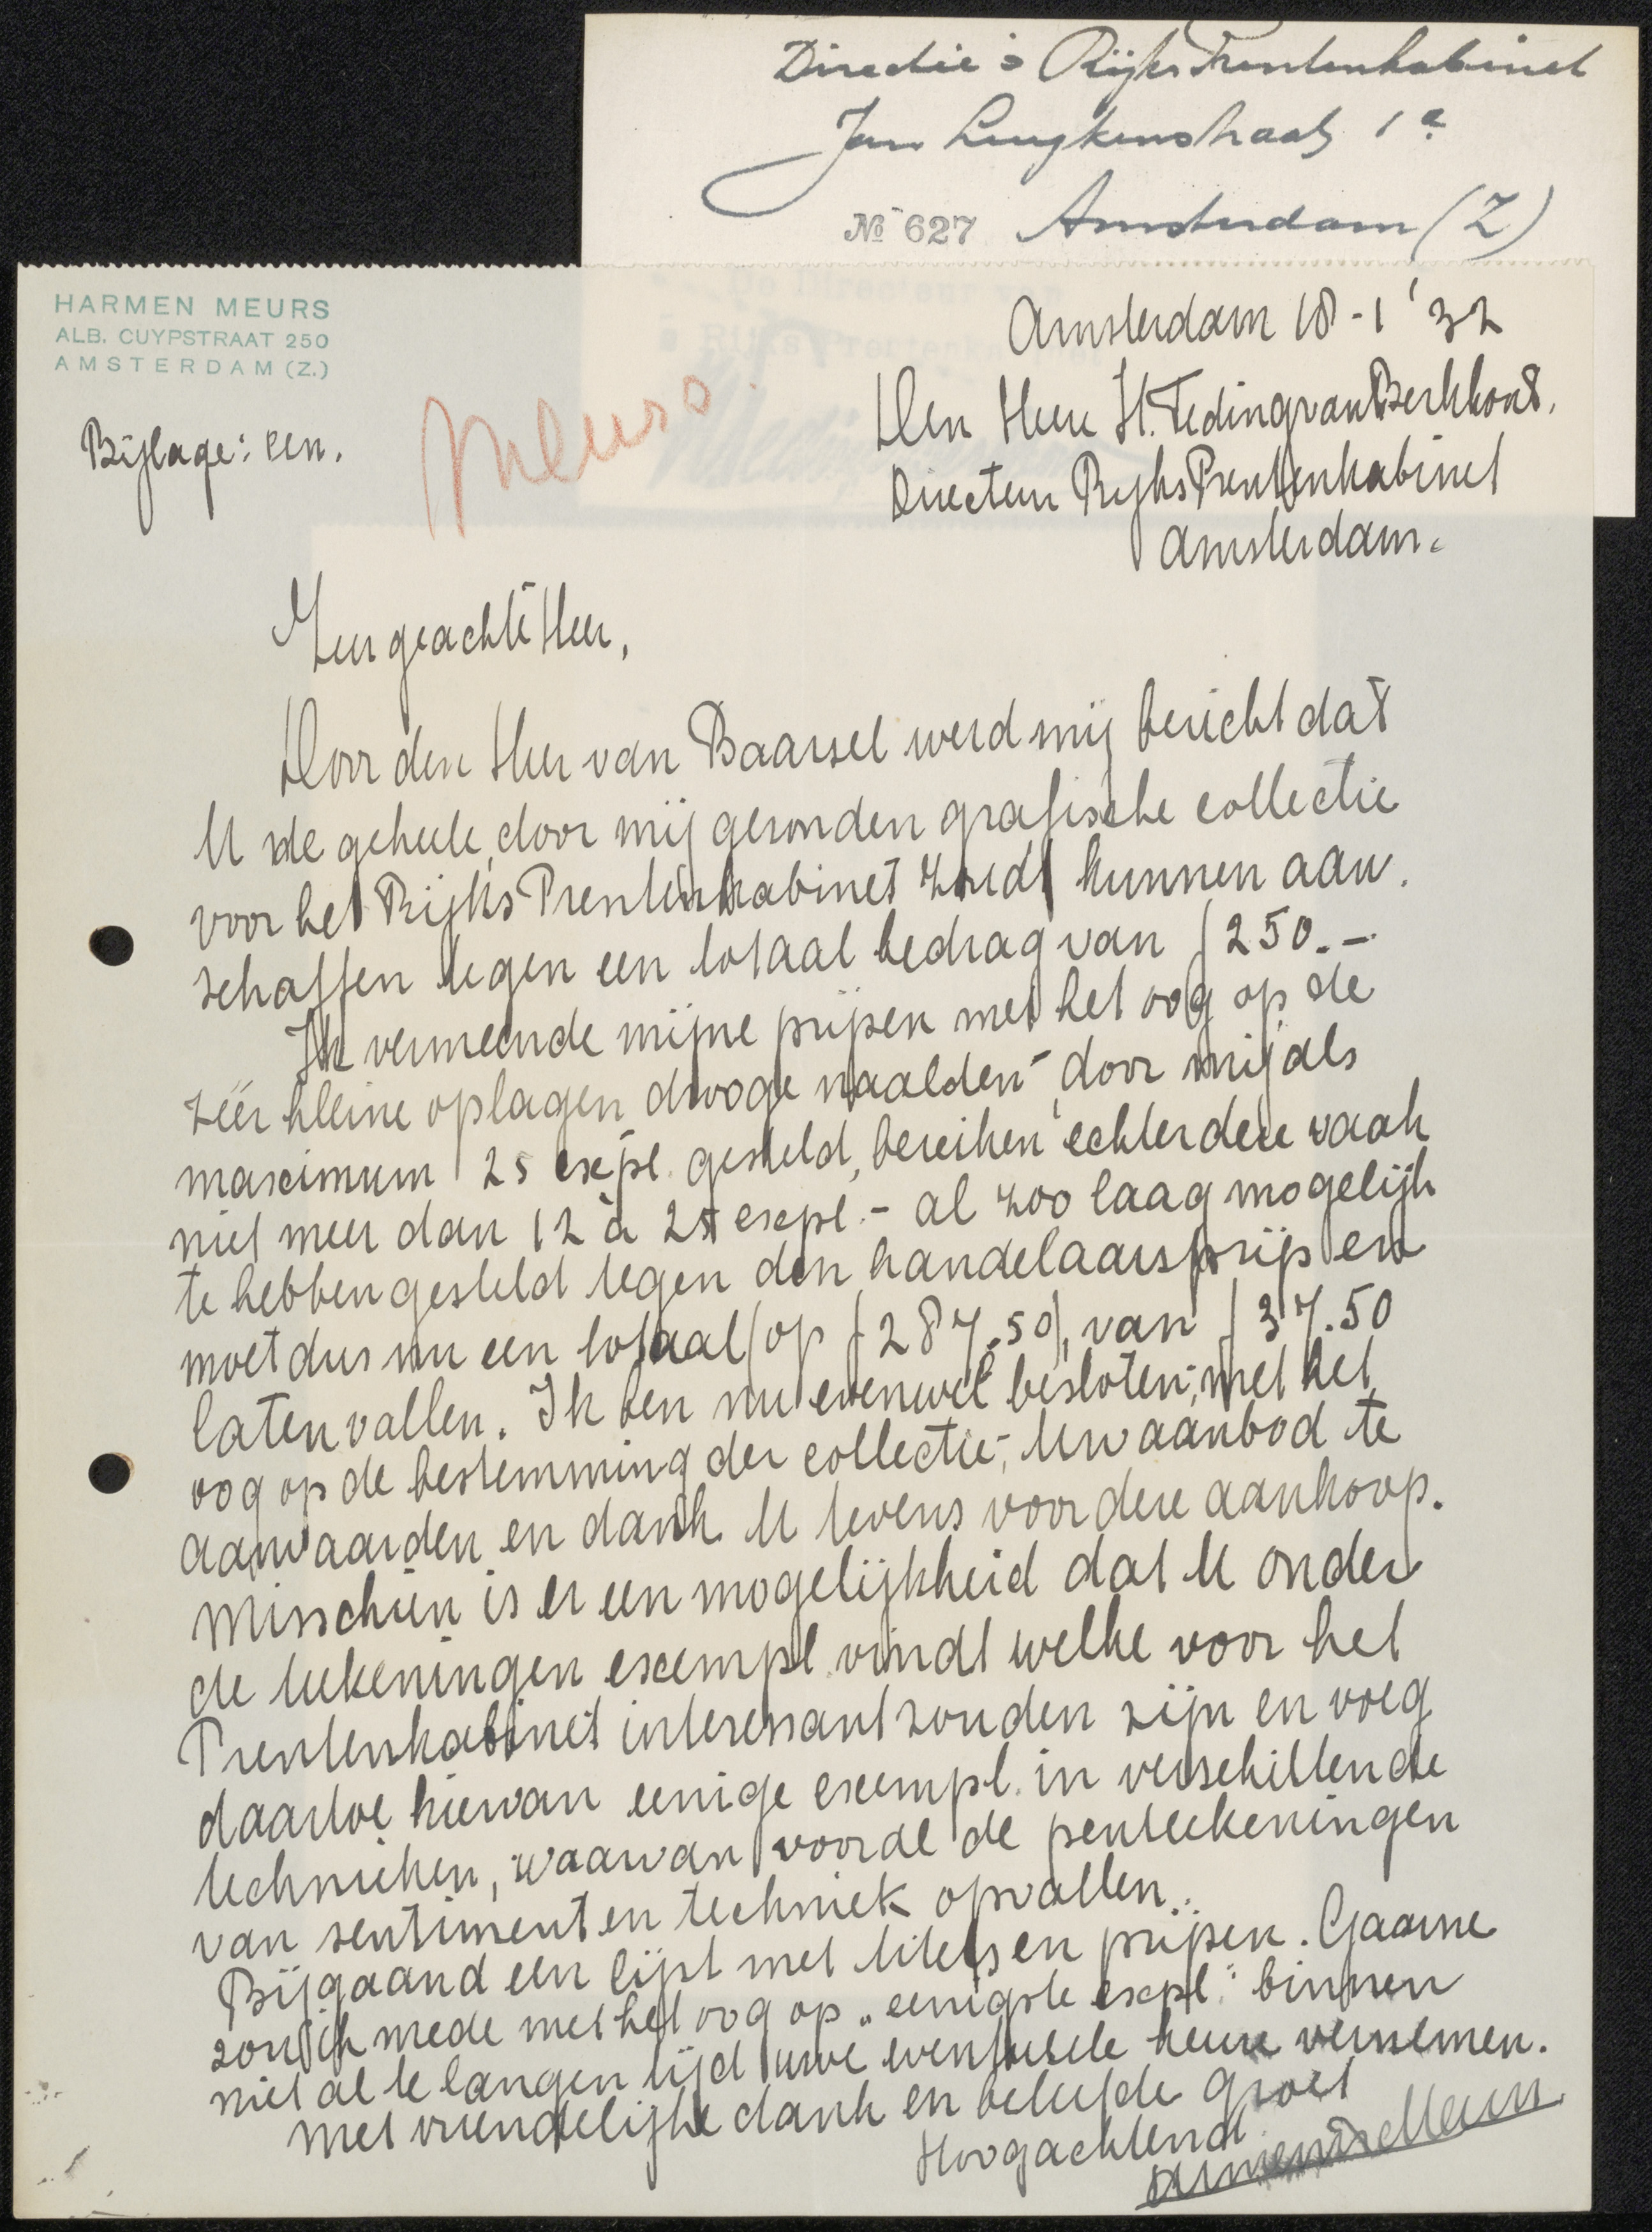 Directie 's Rijks Prentenkabinet
Jan Luykenstraat 1a
Nº 627 Amsterdam (Z)
De Directeur van
's Rijks Prentenkabinet
HARMEN MEURS
ALB. CUYPSTRAAT 250
AMSTERDAM (Z.)
Amsterdam 18-1 '32
Meurs.
Den Heer H. Teding van Berkhout.
Directeur RijksPrentenkabinet
Amsterdam.
Bijlage: een.
Zeer geachte Heer,
Door den Heer van Baarsel werd mij bericht dat
U de geheele, door mij gezonden grafische collectie
voor het Rijks Prentenkabinet zoudt kunnen aan-
schaffen tegen een totaal bedrag van f 250.-
Ik vermeende mijne prijzen met het oog op de
zéér kleine oplagen "drooge naalden" door mij als
maximum 25 expl. gesteld, bereiken echter deze vaak
niet meer dan 12 à 25 expl. - al zoo laag mogelijk
te hebben gesteld tegen den handelaarsprijs en
moet dus nu een totaal (op f 287.50), van f 37.50
laten vallen. Ik ben nu evenwel besloten, met het
oog op de bestemming der collectie, Uw aanbod te
aanvaarden en dank U tevens voor deze aankoop.
Misschien is er een mogelijkheid dat U onder
de teekeningen exempl. vindt welke voor het
Prentenkabinet interessant zouden zijn en voeg
daartoe hiervan eenige exempl. in verschillende
technieken, waarvan vooral de penteekeningen
van sentiment en techniek opvallen.
Bijgaand een lijst met titels en prijzen. Gaarne
zou ik mede met het oog op "eenigste expl." binnen
niet al te langen tijd uwe eventueele keuze vernemen.
Met vriendelijke dank en beleefde groet
Hoogachtend
Harmen Meurs